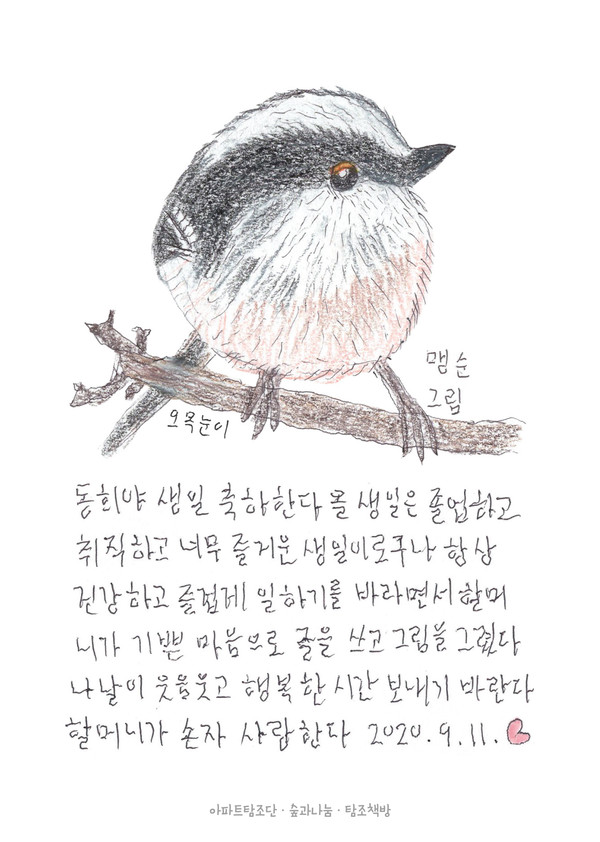 맹순
그림
오목눈이
동희야 생일 축하한다 올 생일은 졸업하고
취직하고 너무 즐거운 생일이로구나 항상
건강하고 즐겁게 일하기를 바라면서 할머
니가 기쁜 마음으로 글을 쓰고 그림을 그렸다
나날이 웃음웃고 행복한 시간 보내기 바란다
할머니가 손자 사랑한다 2020.9.11.
아파트탐조단 · 숲과나눔 · 탐조책방